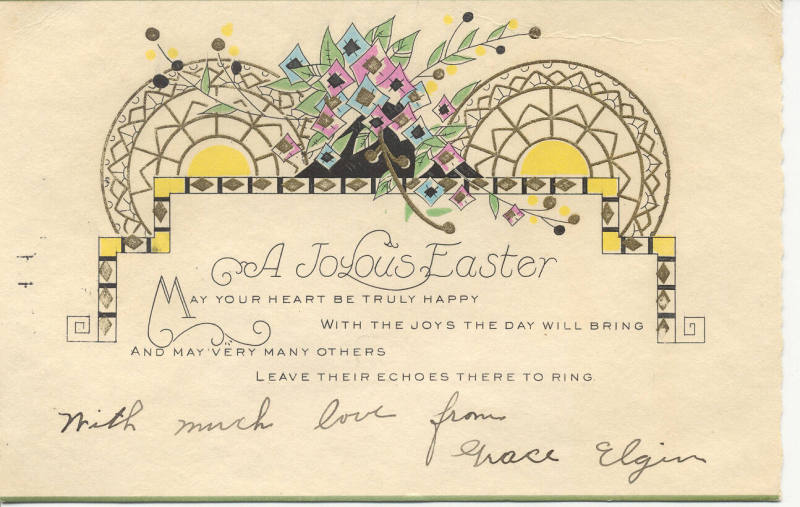 A Joyous Easter
MAY YOUR HEART BE TRULY HAPPY
WITH THE JOYS THE DAY WILL BRING
AND MAY VERY MANY OTHERS
LEAVE THEIR ECHOES THERE TO RING.
With much love from
Grace Elgin